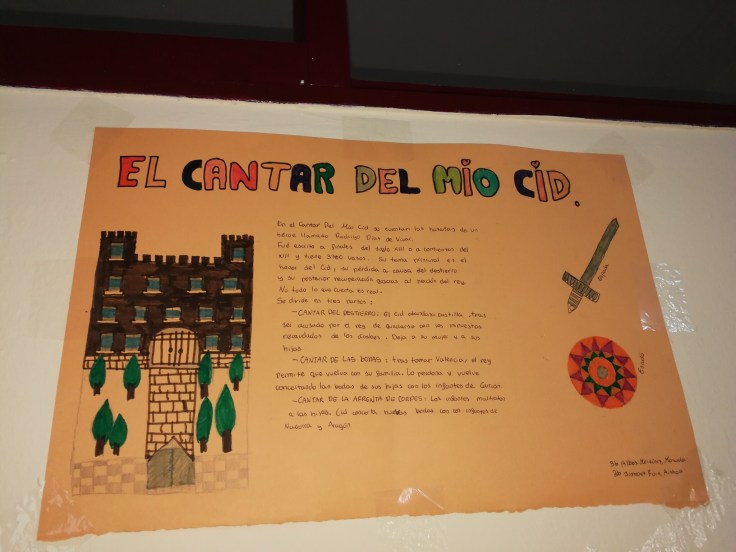 EL CANTAR DEL MIO CID.
En el Cantar Del Mio Cid se cuentan las batallas de un
héroe llamado Rodrigo Díaz de Vivar.
Fue escrito a finales del siglo XII o a comienzos del
XIII y tiene 3730 versos. Su tema principal es el
honor del Cid, su pérdida a causa del destierro
y su posterior recuperación gracias al perdón del rey.
No todo lo que cuenta es real.
Se divide en tres partes:
-CANTAR DEL DESTIERRO: El Cid abandona Castilla, tras
ser acusado por el rey de quedarse con los impuestos
recaudados de los . Deja a su mujer y a sus
hijas.
-CANTAR DE LAS BODAS: tras tomar Valencia, el rey
permite que vuelva con su familia. Lo perdona y vuelve
concertando las bodas de sus hijas con los infantes de Carrión
-CANTAR DE LA AFRENTA DE CORPES: Los infantes maltratan
a las hijas. Cid nuevas bodas con los infantes de
Navarra y Aragón.
Escudo